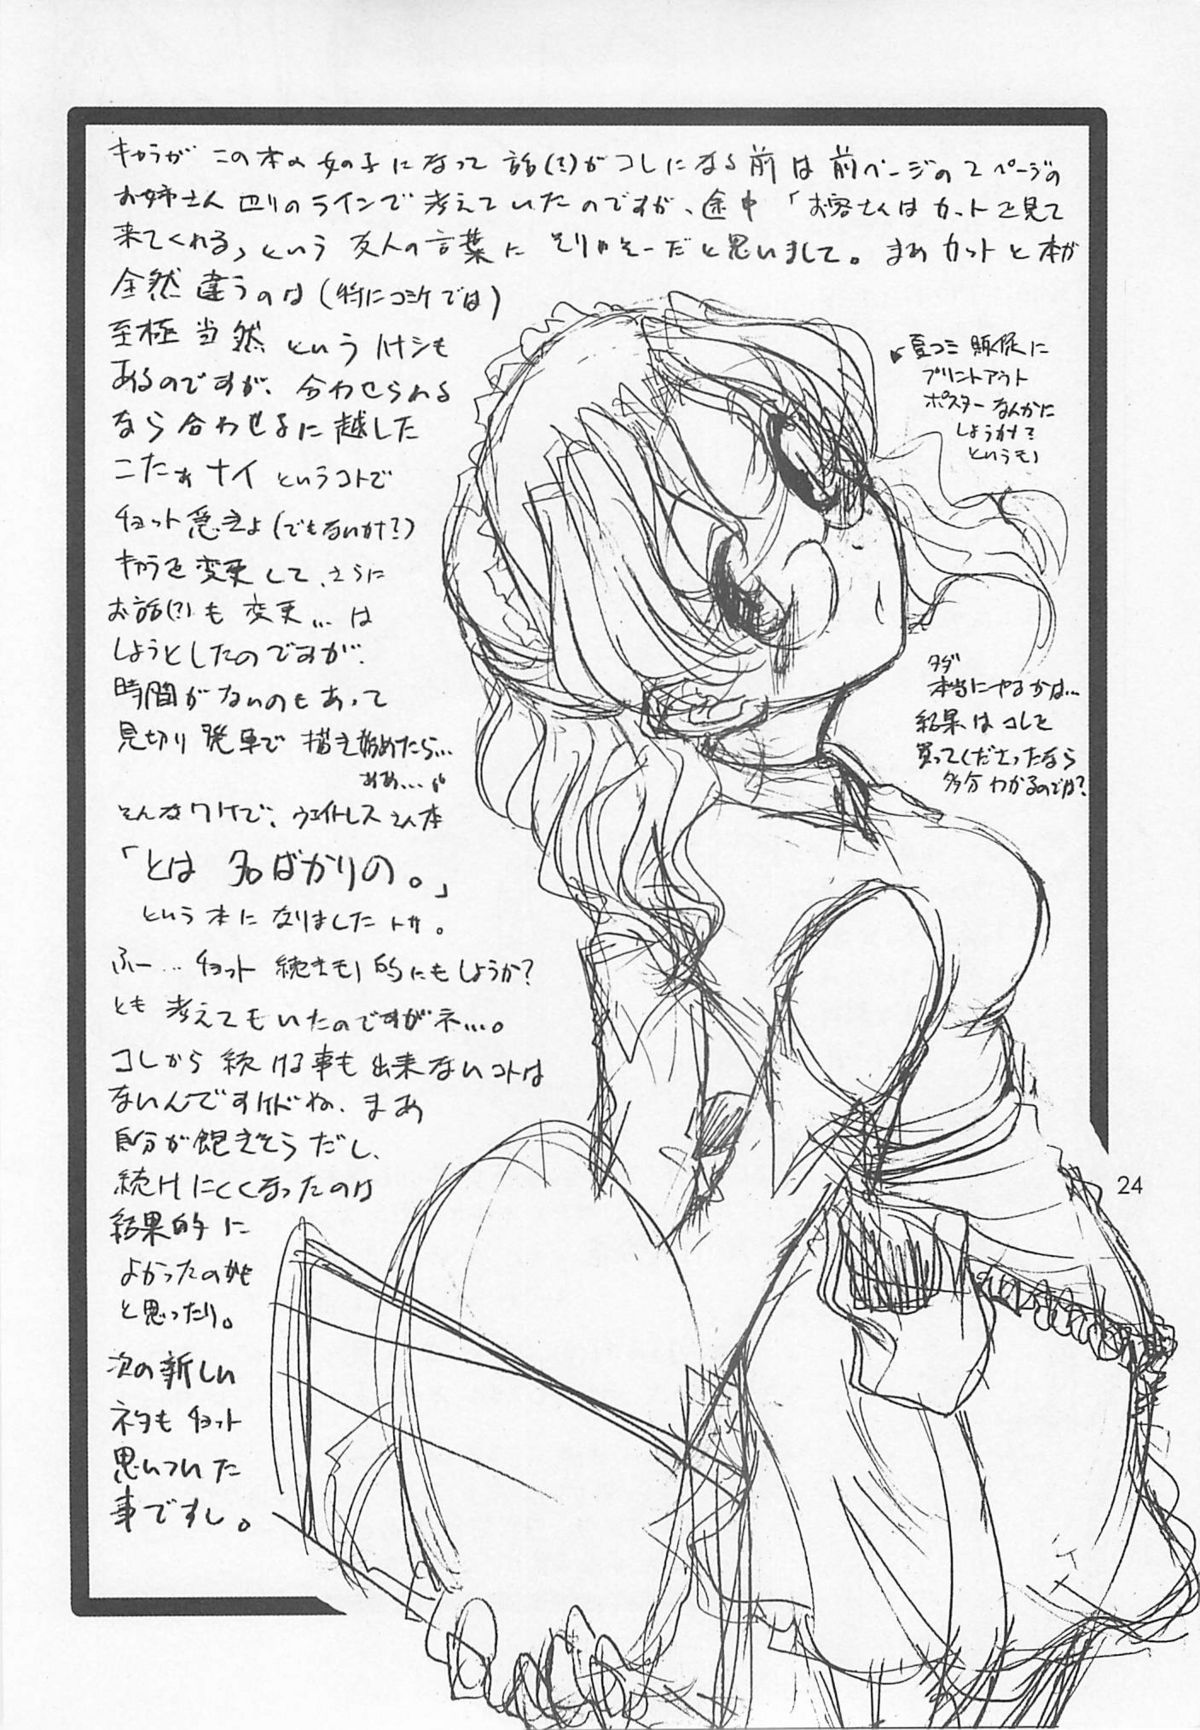 キャラが この本の女の子になって 話(?)がコレになる前は前ページの2ページの
お姉さん辺りのラインで考えていたのですが、途中「お客さんはカットを見て
来てくれる」という 友人の言葉に そりゃそーだと思いまして。まぁカットと本が
全然違うのは(特にコミケでは)
至極当然というハナシも
あるのですが、合わせられる
なら合わせるに越した
こたぁナイというコトで
チョット急きょ(でもないか?)
キャラを変更して、さらに
お話(?)も変更...は
しようとしたのですが、
時間がないのもあって
見切り発車で描き始めたら...
ああ....。
そんなワケで、ウエイトレスさん本
「とは名ばかりの。」
という本になりましたトサ。
ふー...チョット続きモノ的にもしようか?
とも考えてもいたのですがネ...。
コレから続ける事も出来ないコトは
ないんですけドね、まあ
自分が飽きそうだし、
続けにくくなったのは
結果的に
よかったのかも
と思ったり。
次の新しい
ネタもチョット
思いついた
事ですし。
夏コミ販促に
プリントアウト
ポスターなんかに
しようか?
というモノ
タダ
本当にやるかは...
結果はコレを
買ってくださったなら
多分わかるのでは?
24